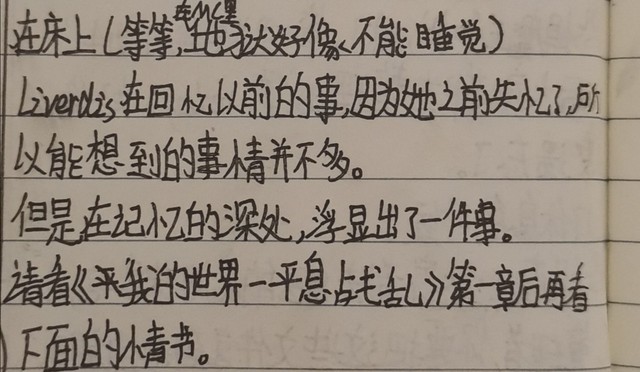 在床上(等等,在这里地狱好像不能睡觉)
Liverdis在回忆以前的事,因为她之前失忆了,所
以能想到的事情并不多。
但是在记忆的深处,浮显出了一件事。
请看《我的世界—平息占戈乱》第一章后再看
下面的情节。